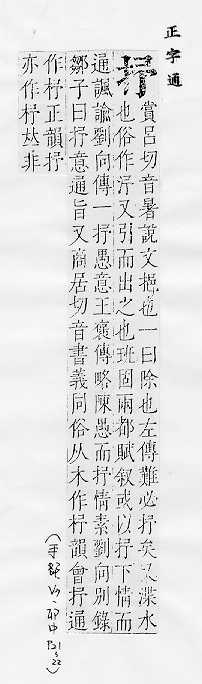 正字通
抒
賞呂切音暑說文挹也一曰除也左傳難必抒矣又渫水
也俗作㳿又引而出之也班固兩都賦叙或以抒下情而
通諷諭劉向傳一抒愚意王褒傳略陳愚而抒情素劉向別錄
鄒子曰抒意通旨又商居切音書義同俗从木作杼韻會抒通
作杼正韻抒
亦作杼𠀤非